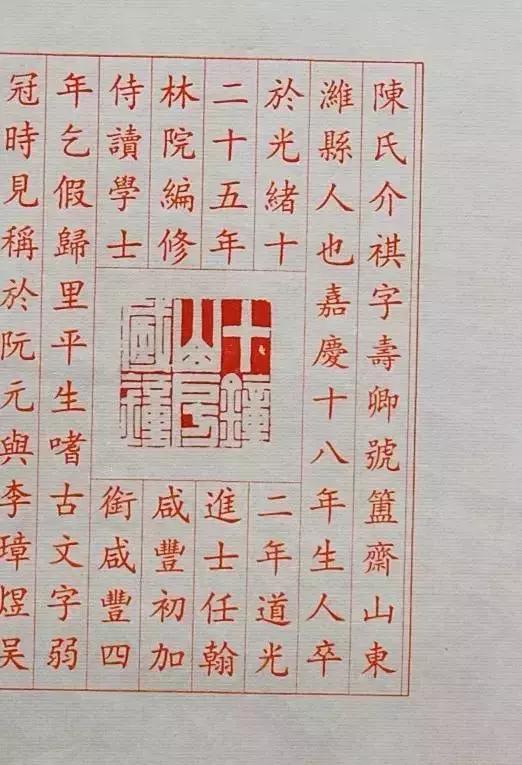 陳氏介祺字壽卿號簠齋山東
濰縣人也嘉慶十八年生人卒
於光緒十二年道光
二十五年進士任翰
林院編修咸豐初加
侍讀學士銜咸豐四
年乞假歸里平生嗜古文字弱
冠時見稱於阮元與李璋煜吳
十鐘
山房